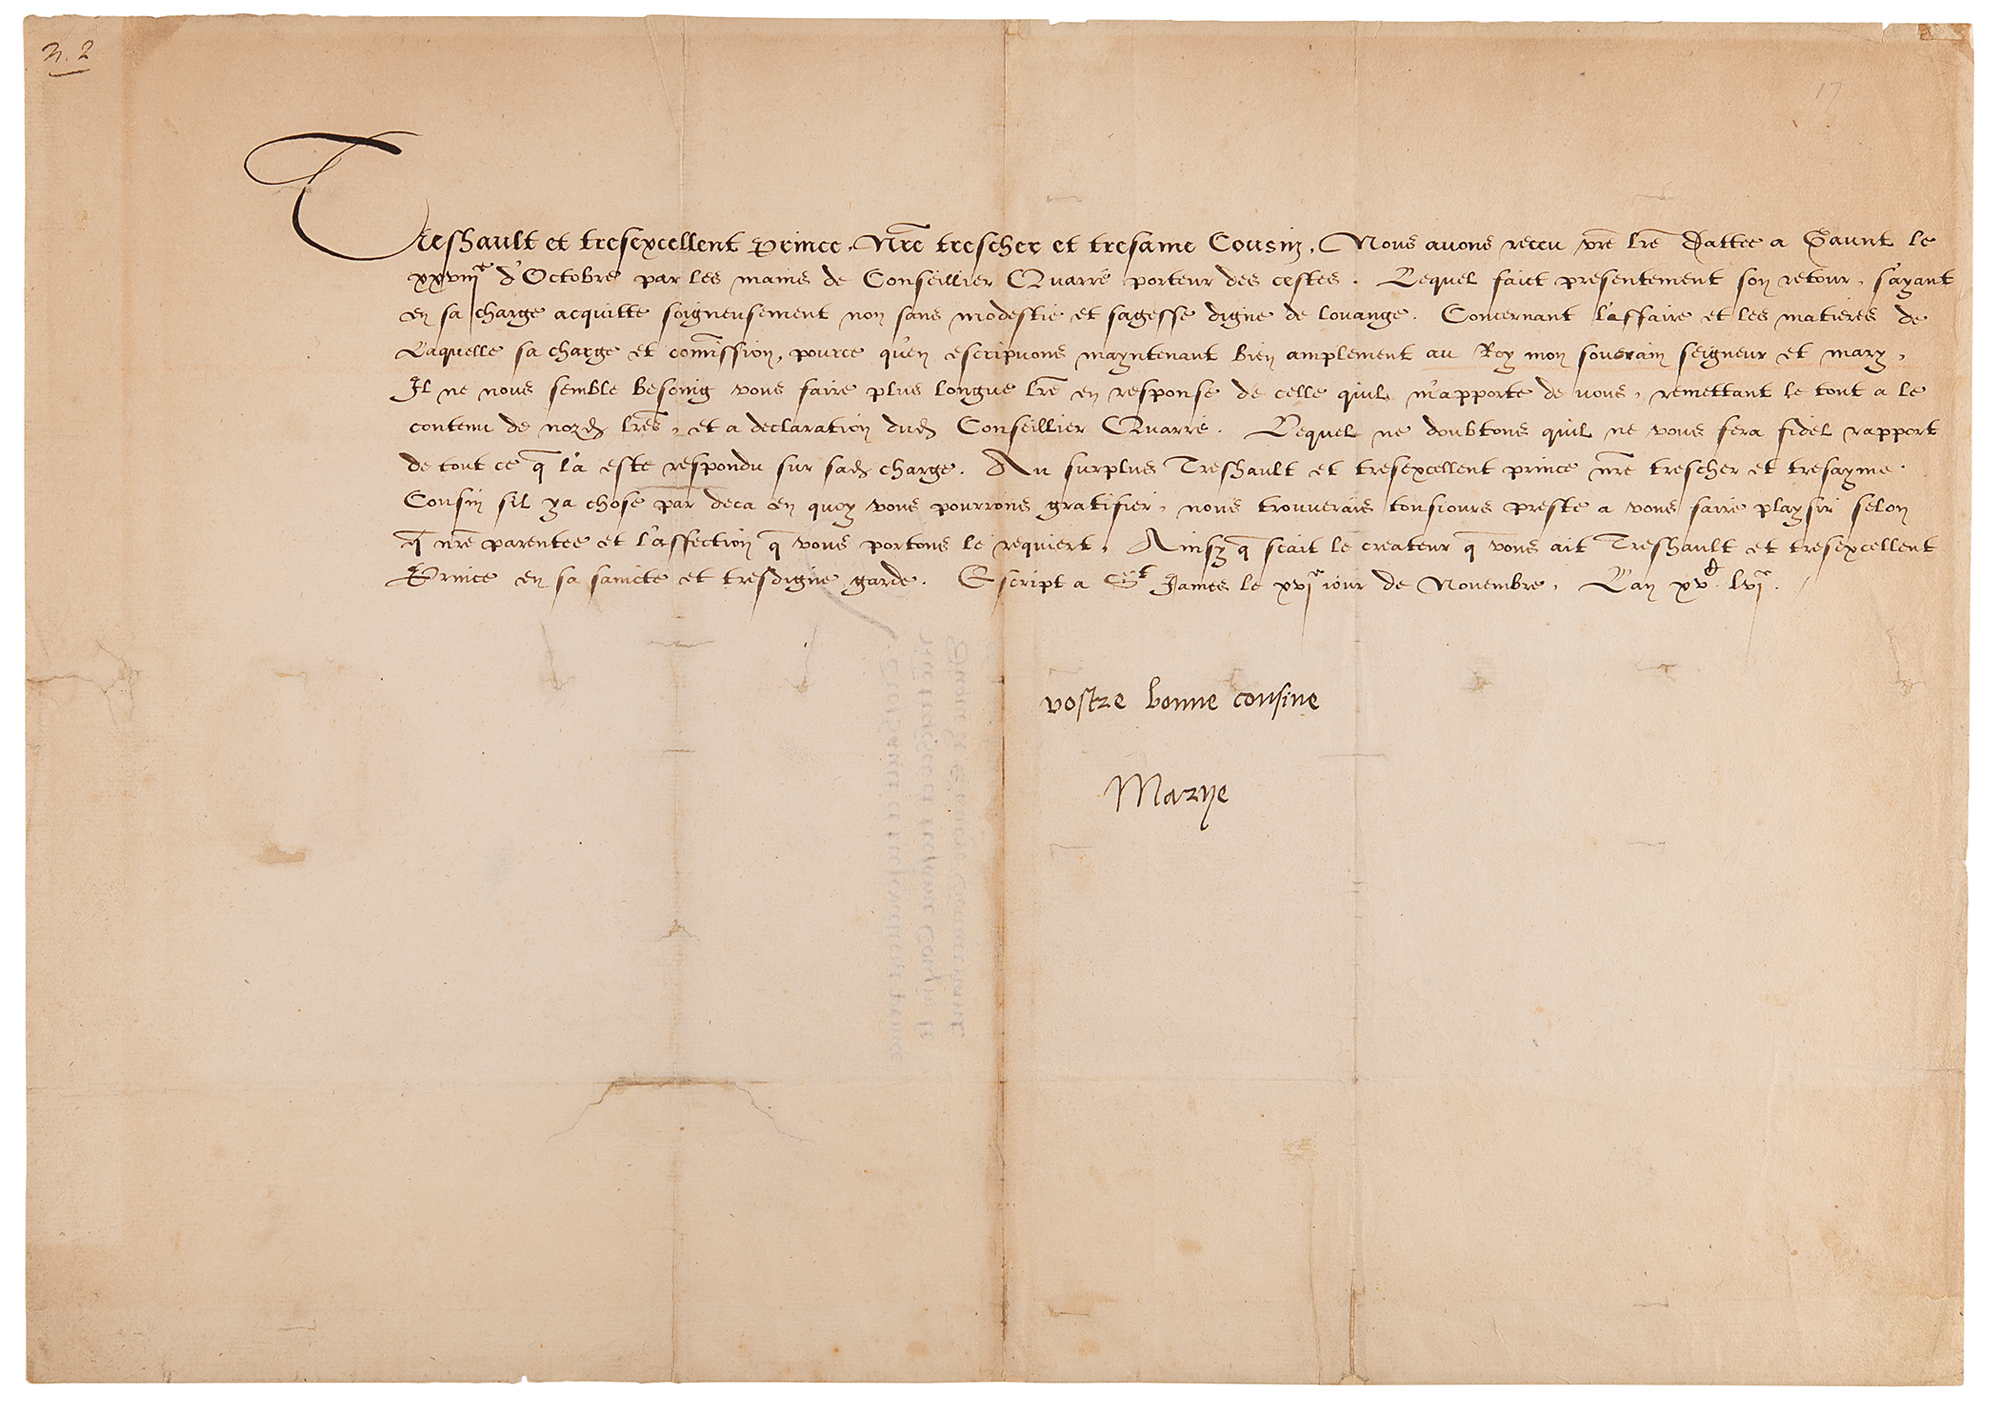 n. 2
17
Treshault et tresexcellent Prince, Nre trescher et tresame Cousin, Nous avons receu vre lre dattee a Gaunt le
xxviiie d'Octobre par les mains de Conseillier Quarré porteur des cestes. Lequel faict presentement son retour, s'ayant
en sa charge acquitte soigneusement non sans modestie et sagesse digne de louange. Concernant l'affaire et les matieres de
Laquelle sa charge et comission, pource qu'en escripvons mayntenant bien amplement au Roy mon souverain seigneur et mary,
Il ne nous semble besoing vous faire plus longue lre en response de celle quil m'apporte de vous, remettant le tout a le
contenu de nozd lres, et a declaration dud Conseillier Quarré. Lequel ne doubtons quil ne vous fera fidel rapport
de tout ce q l'a este respondu sur sad charge. Au surplus Treshault et tresexcellent prince nre trescher et tresayme
Cousin sil ya chose par deca en quoy vous pourrons gratifier, nous trouverais tousiours preste a vous faire playsir selon
q nre parentee et l'affection q vous portons le requiert, Ainsy q scait le createur q vous ait Treshault et tresexcellent
Prince en sa saincte et tresdigne garde. Escript a St James le xvie iour de Novembre, L'an xvc lvie.
vostre bonne cousine
Marye